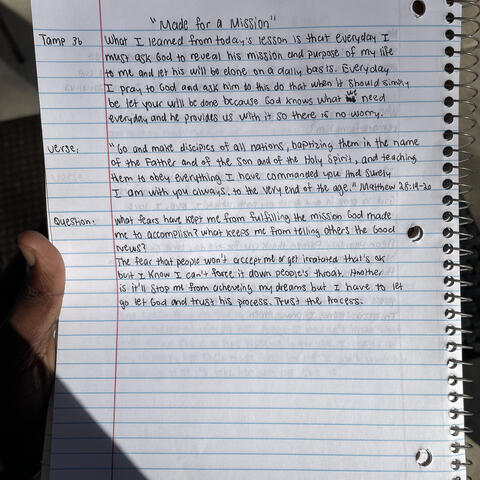 "Made for a Mission"
Tamp 36 What I learned from today's lesson is that everyday I
must ask God to reveal his mission and purpose of my life
to me and let his will be done on a daily basis. Everyday
I pray to God and ask him to this do that when it should simply
be let your will be done because God knows what we need
everyday and he provides us with it so there is no worry.
Verse: "Go and make disciples of all nations, baptizing them in the name
of the Father and of the Son and of the Holy Spirit, and teaching
them to obey everything I have commanded you And surely
I am with you always, to the very end of the age." Matthew 28:19-20
Question: What fears have kept me from fulfilling the mission God made
me to accomplish? What keeps me from telling others the Good
News?
The fear that people won't accept me or get irratated that's ok
but I know I can't force it down people's throat. Another
is it'll stop me from acheiveing my dreams but I have to let
go let God and trust his process. Trust the Process.